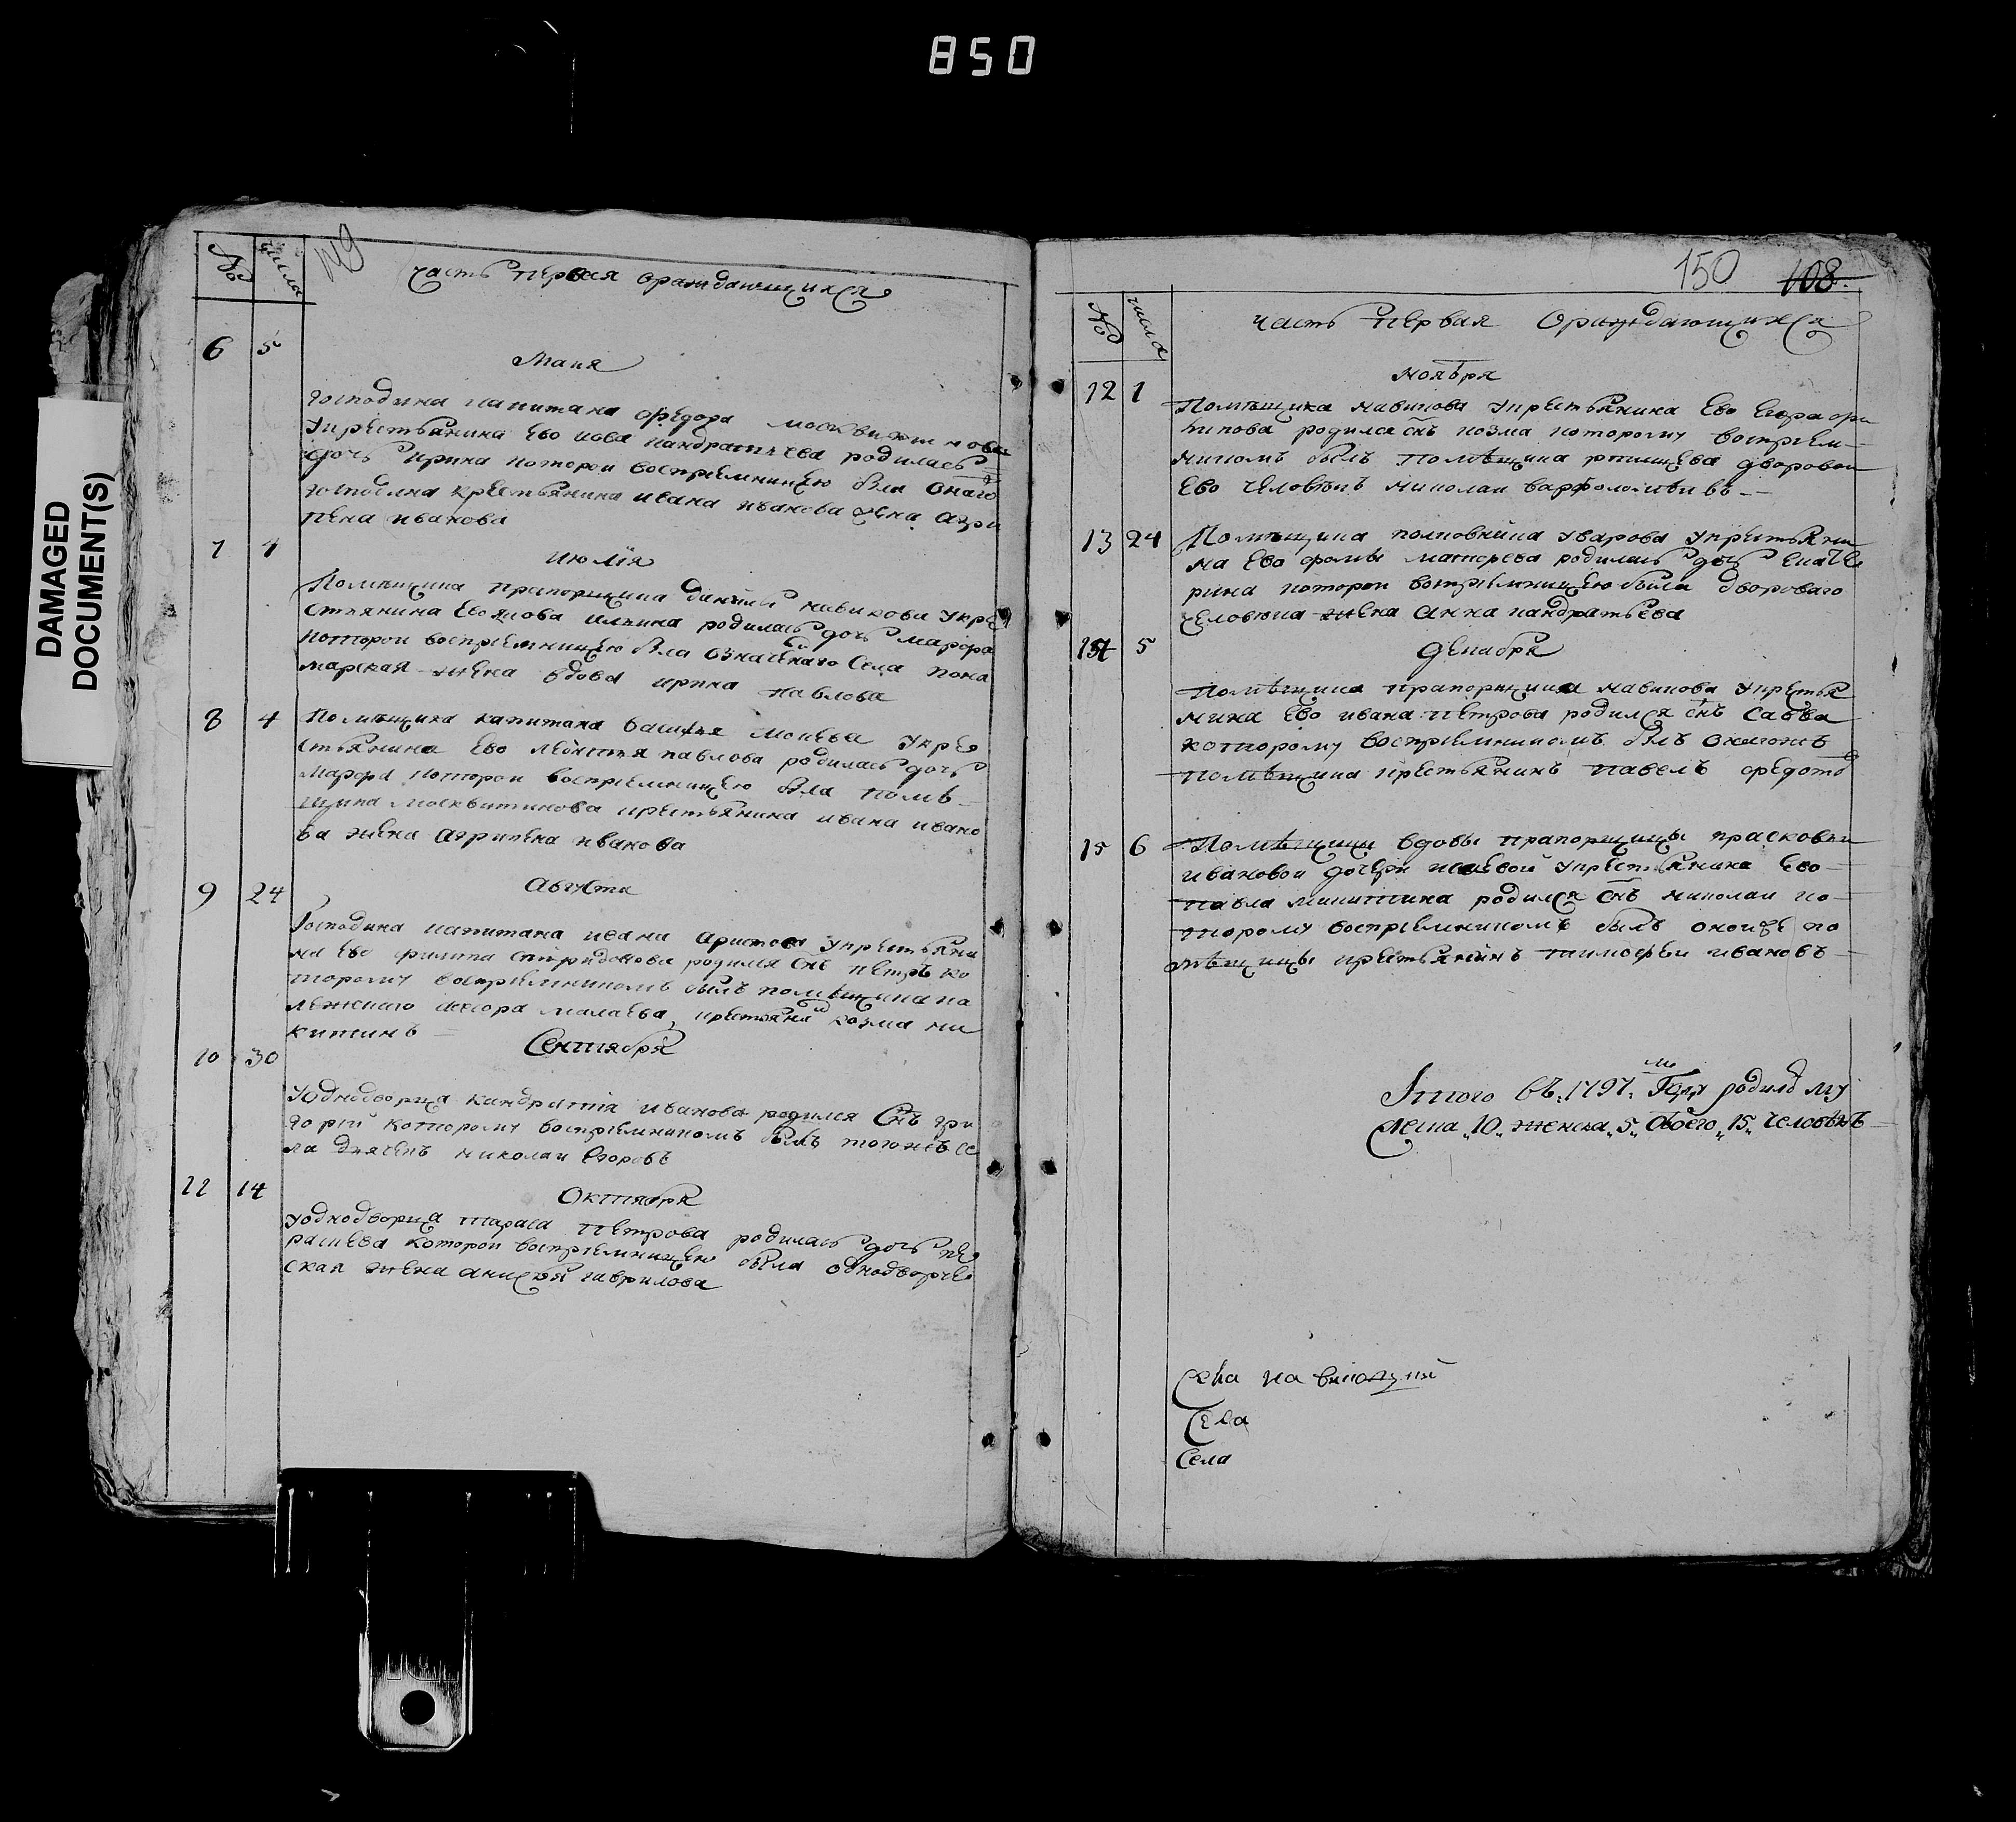 850
DAMAGED
DOCUMENT(S)
149
№ числа
часть первая ораждающихся
6 5
Маия
Господина капитана федора москвитинова
укрестьянина ево иова кандратьева родилась
дочь ирина которои восприемницею была онаго
господина крестьянина ивана иванова жена агри
пена иванова
7 4
июлїя
Помѣщика прапорщика навикова укре
стьянина ево иткина родилась дочь марфа
которои восприемницею была означенаго села пона
марская жена вдова ирина павлова
8 4
Помѣщика капитана василья укре
стьянина ево павлова родилась дочь
марфа которои восприемницею была помѣ
щика москвитинова крестьянина ивана ивано
ва жена агрипена иванова
Августа
9 24
Господина капитана ивана аристова укрестьяни
на ево филипа спиридонова родился снъ петръ ко
торому восприемникомъ былъ помѣщика ко
лежскаго асесора малаева крестьянинъ козма ни
китинъ
Сентября
10 30
Уоднодворца кандратїя иванова родился Снъ гри
горїй которому восприемникомъ былъ тогожъ се
ла дьячекъ николаи егоровъ
11 14
Октября
уоднодворца тараса петрова родилась дочь пе
раскева которои восприемницею была однодворче
ская жена гаврилова
150 108
№ числа
часть первая Ораждающихся
Ноября
12 1
Помѣщика навикова укрестьянина ево
родился снъ козма которому восприем
никомъ былъ Помѣщика ртищева дворовои
ево человѣкъ николаи варфоломѣивъ
13 24
Помѣщика полковника уварова укрестьяни
на ево фомы матфеева родилась дочь Екате
рина которои восприемницею была дворового
человека жена Анна кандратьева
14 5
декабря
Помѣщика прапорщика навикова укрестья
нина ево ивана петрова родился снъ Савва
которому восприемникомъ былъ онагожъ
помѣщика крестьянинъ павелъ федотов
15 6
Помѣщицы вдовы прапорщицы прасковьи
ивановои дочери укрестьянина ево
павла никитина родился Снъ николаи ко
торому восприемникомъ былъ оной же по
мѣщицы крестьянинъ тимофеи ивановъ
Итого въ 1797 м Году родилос му
жеска 10 женска 5 обоего 15 человѣкъ
Села
Села
Села